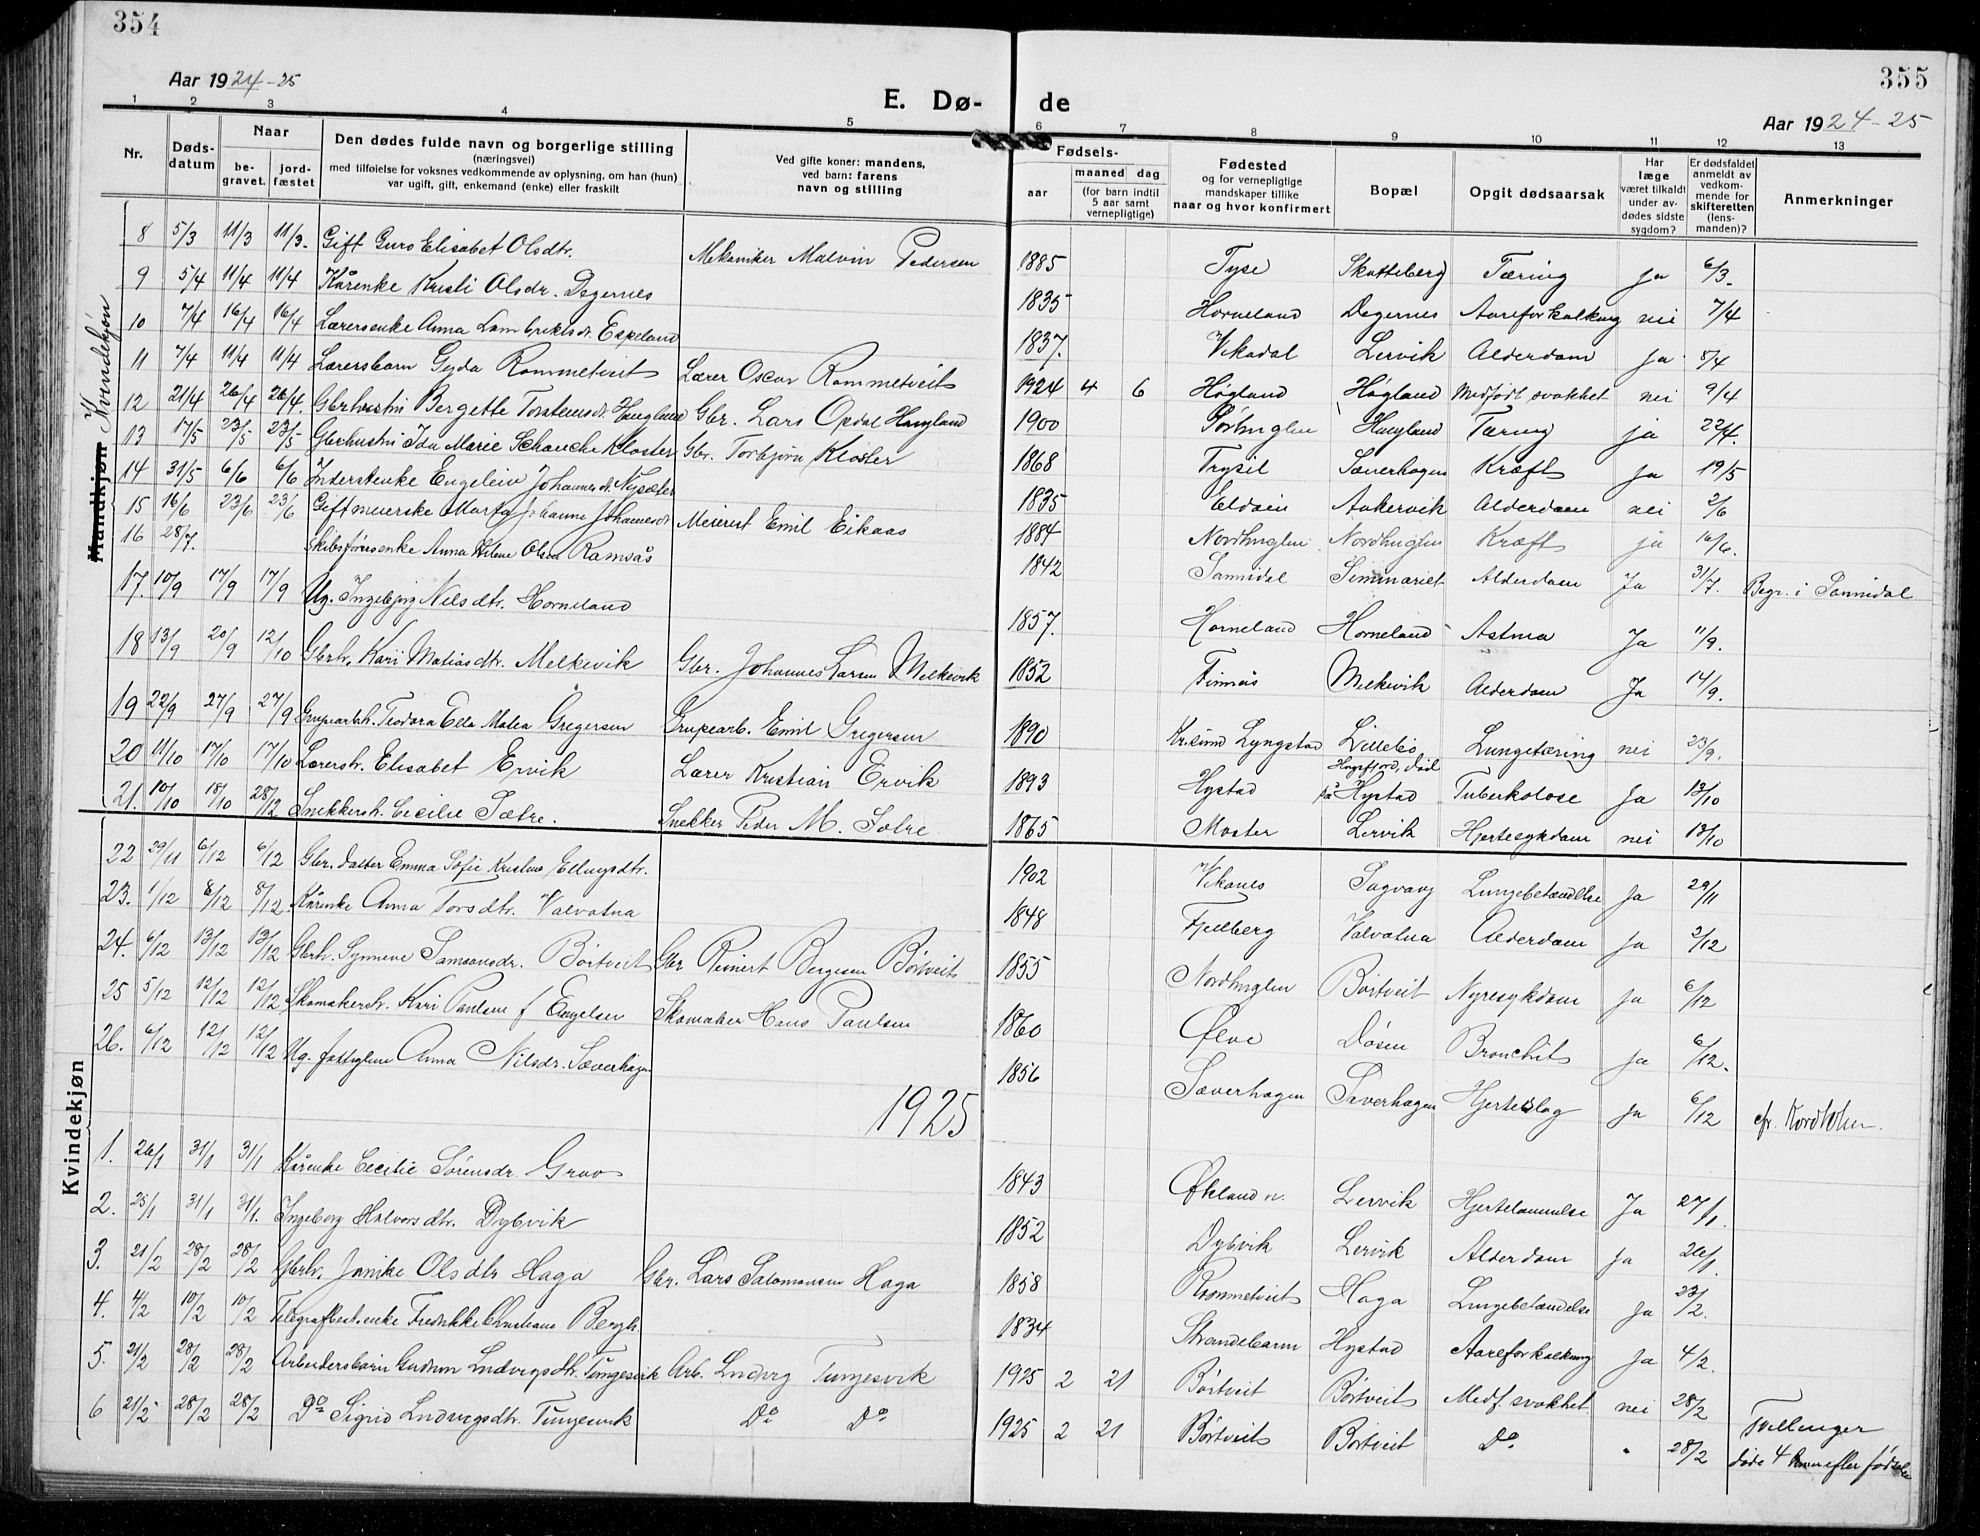 354
355
Aar 1924-25
E. Dø-
de
Aar 1924-25
1 2 3 4 5 6 7 8 9 10 11 12 13
Nr.
Døds-datum
Naar
be-gravet.
jord-fæstet
Den dødes fulde navn og borgerlige stilling
(næringsvei)
med tilføielse for voksnes vedkommende av oplysning, om han (hun)
var ugift, gift, enkemand (enke) eller fraskilt
Ved gifte koner: mandens,
ved barn: farens
navn og stilling
Fødsels-
aar
maaned dag
(for barn indtil
5 aar samt
vernepligtige)
Fødested
og for vernepligtige
mandskaper tillike
naar og hvor konfirmert
Bopæl
Opgit dødsaarsak
Har
læge
været tilkaldt
under av-
dødes sidste
sygdom?
Er dødsfaldet
anmeldt av
vedkom-
mende for
skifteretten
(lens-
manden)?
Anmerkninger
Mandkjøn Kvindekjøn
8 5/3 11/3 11/3. Gift Guro Elisabet Olsdtr. Mekaniker Malvin Pedersen 1885 Tyse Skotteberg Tæring ja 6/3.
9 5/4 11/4 11/4 Kårenke Kristi Olsdr. Degernes 1835 Horneland Degernes Aareforkalkning nei 7/4
10 7/4 16/4 16/4 Lærersenke Anna Lambrektsdr Espeland 1837. Vikadal Lervik Alderdom ja 8/4
11 7/4 11/4 11/4 Lærersbarn Gyda Rommetveit Lærer Oscar Rommetveit 1924 4 6 Høgland Høgland Medfødt svakhet nei 9/4
12 21/4 26/4 26/4. Gbrhustru Bergette Torstensdr Haugland Gbr. Lars Opdal Haugland 1900 Sørhuglen Haugland Tæring ja 22/4.
13 17/5 23/5 23/5 Gbrhustru Ida Marie Schanche Kloster Gbr. Torbjørn Kloster 1868 Trysil Sæverhagen Kræft ja 19/5
14 31/5 6/6 6/6 Inderstenke Engelein Johannesdt. Nysæter 1835 Eldøen Aakervik Alderdom nei 2/6
15 16/6 23/6 23/6 Gift meierske Marta Johanne Johannesdt Meierist Emil Eikaas 1884 Nordhuglen Nordhuglen Kræft ja 16/6.
16 28/7. Skibsførersenke Anna Helene Olsen Ramsås 1842 Sannidal Seminariet Alderdom Ja 31/7. Begr. i Sannidal
17. 10/9 17/9 17/9 Ug. Ingebjørg Nilsdtr. Horneland 1857. Horneland Horneland Astma Ja 11/9.
18 13/9 20/9 12/10 Gbrh. Kari Matiasdtr. Melkevik Gbr. Johannes Larsen Melkevik 1852 Finnås Melkevik Alderdom Ja 14/9.
19 22/9 27/9 27/9 Grupearbh. Teodora Ella Malea Gregersen Grupearb. Emil Gregersen 1890 Kr.sund Lyngstad Lillebø Lungetæring nei 23/9.
20 11/10 17/10 17/10 Lærersh. Elisabet Ervik Lærer Kristian Ervik 1893 Hystad på Hystad Tuberkolose Ja 13/10
21. 10/10 18/10 28/12 Snekkersh. Cecilie Sætre. Snekker Peder M. Sætre 1865 Moster Lervik Hjertesykdom nei 13/10
22 29/11 6/12 6/12 Gbr. datter Emma Sofie Kristine Ellingsdtr. 1902 Vikanes Sagvaag Lungebetændelse Ja 29/11
23. 1/12 8/12 8/12. Kårenke Anna Torsdtr. Valvatna 1848 Fjelberg Valvatna Alderdom Ja 2/12
24. 6/12 13/12 13/12 Gbrh. Synneve Samsonsdr. Børtveit Gbr Reinert Bergesen Børtveit 1855 Nordhuglen Børtveit Nyresykdom ja 6/12
25 5/12 12/12 12/12 Skomakersh. Kari Paulsen f Engelsen Skomaker Hans Paulsen 1860 Ølve Døsen Bronchit ja 6/12.
26. 6/12 12/12 12/12 Ug. fattiglem Anna Nilsdr. Sæverhagen 1856 Sæverhagen Sæverhagen Hjerteslag ja 6/12
Kvindekjøn
1925
1. 26/1 31/1 31/1 Kårenke Cecilie Sørensdr. Grov 1843 Økland Lervik Hjertelammelse Ja 27/1.
2. 25/1 31/1 31/1. Ingeborg Halvorsdtr. Dybvik 1852 Dybvik Lervik Alderdom ja 26/1.
3. 21/2 28/2 28/2 Gbrh. Janike Olsdtr Haga Gbr. Lars Salomonsen Haga 1858 Rommetveit Haga Lungebetændelse ja 23/2.
4. 4/2 10/2 10/2 Telegrafbest. enke Fredrikke Christiane Bergh. 1834 Strandebarm Hystad Aareforkalkning Ja 4/2.
5. 21/2 28/2 28/2 Arbeidersbarn Gudrun Ludvigsdtr. Tungesvik Arb. Ludvig Tungesvik 1925 2 21 Børtveit Børtveit Medf. svakhet nei 28/2
6 21/2 28/2 28/2 Do Sigrid Ludvigsdtr. Tungesvik Do Do 1925 2 21 Børtveit Børtveit Do " 28/2 Tvillinger
døde 4 timer efter fødselen